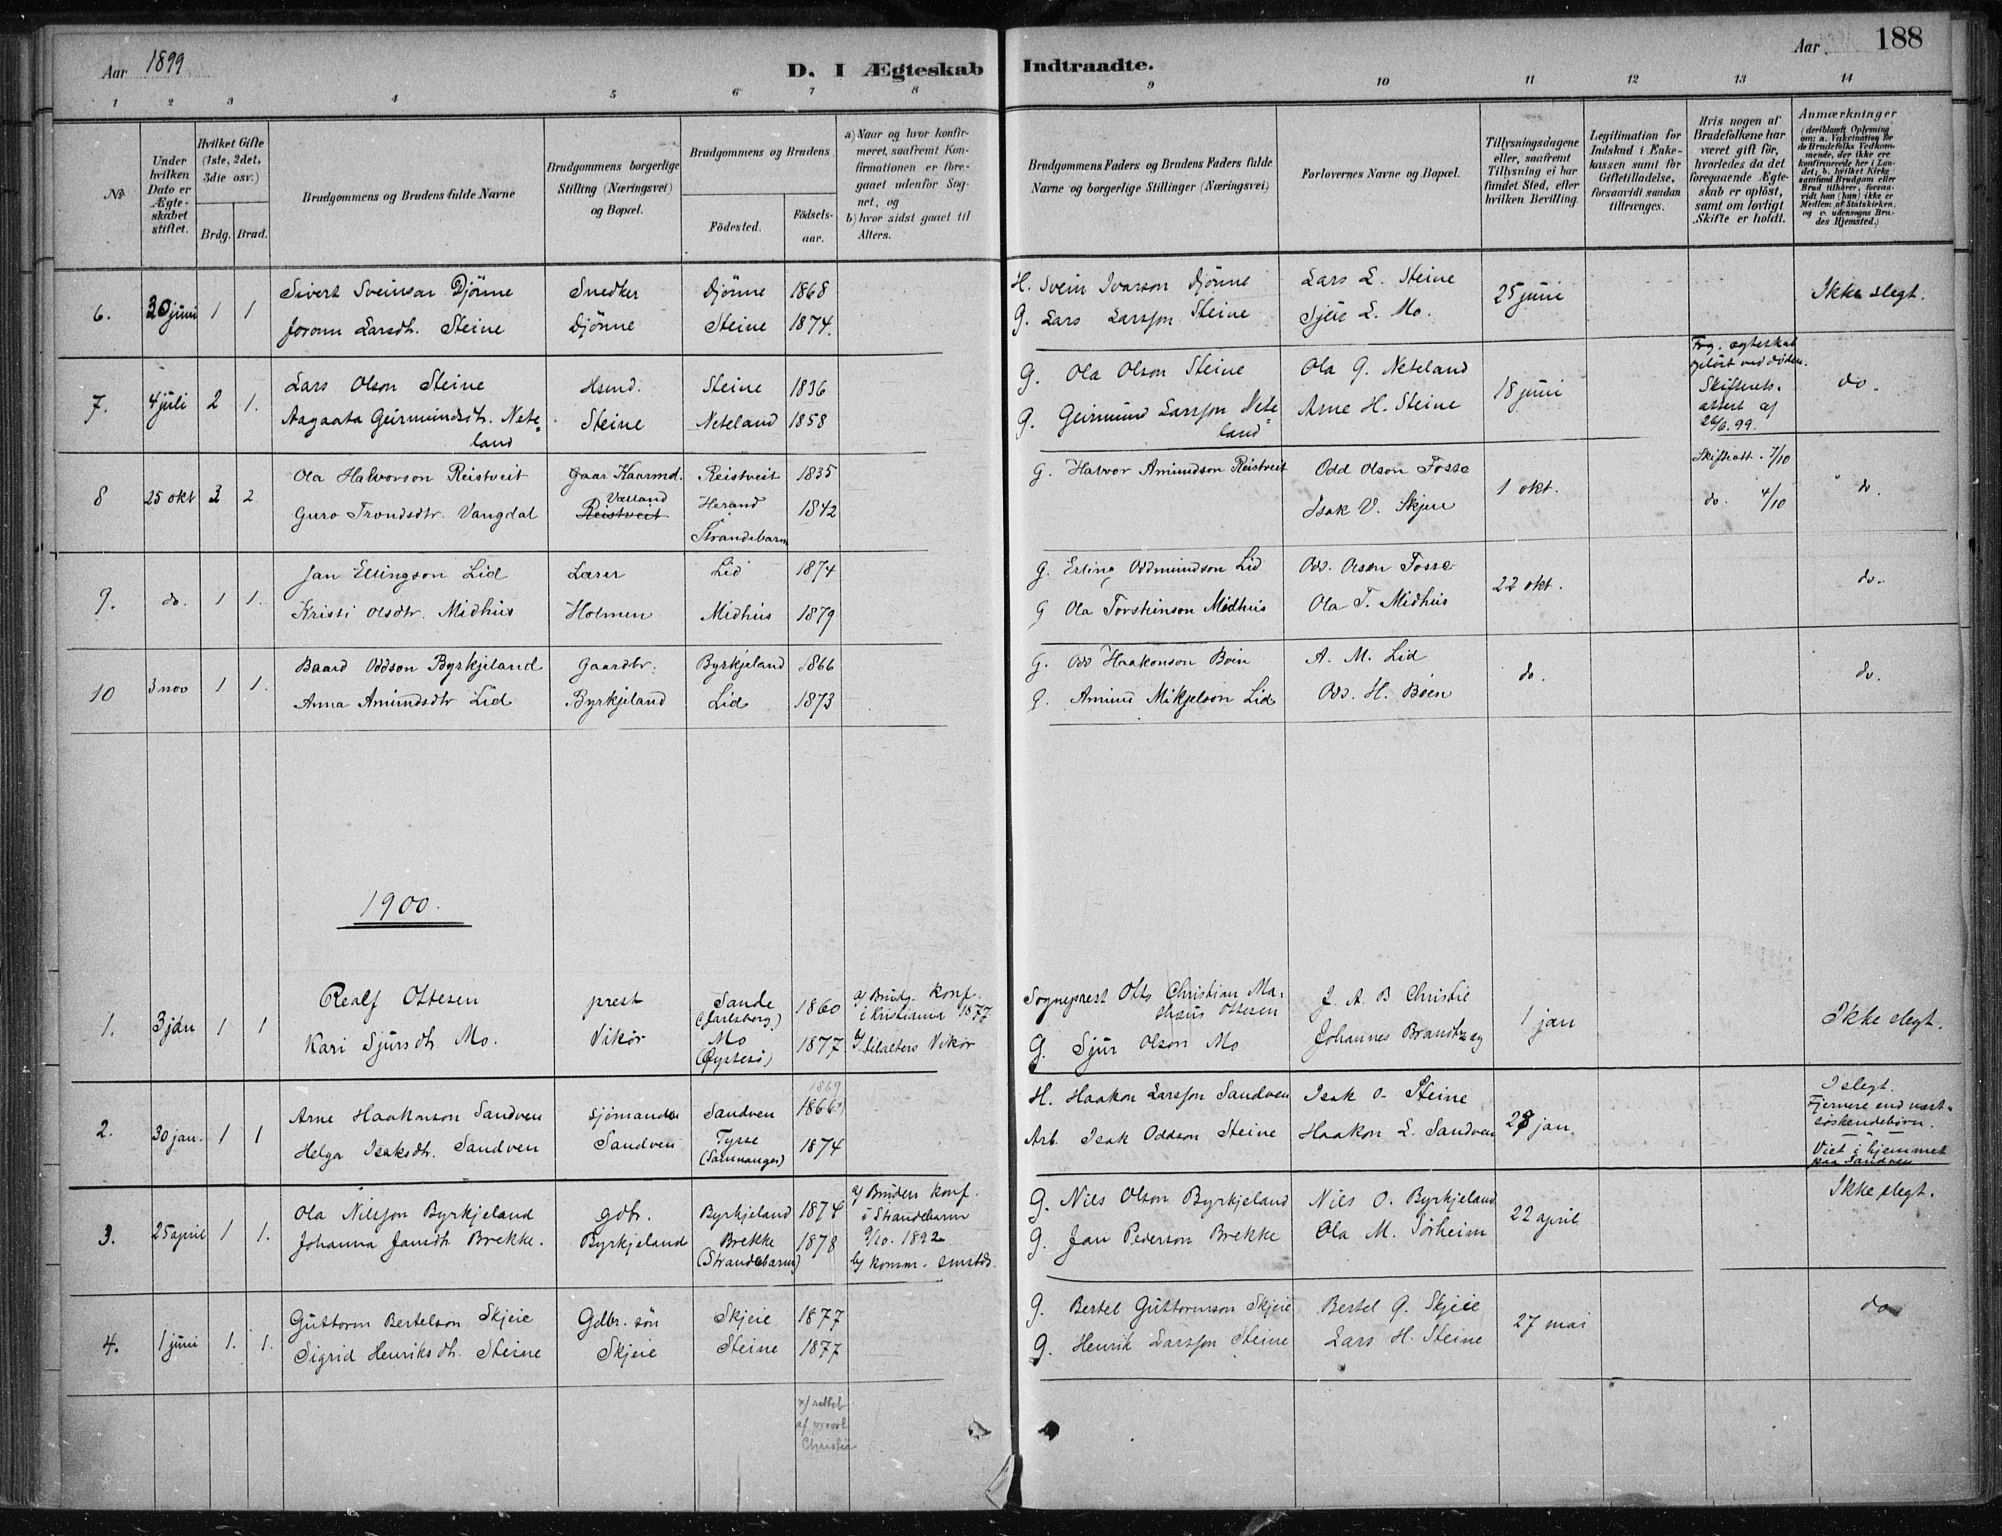 Aar 1899
D. I Ægteskab Indtraadte.
Aar 188
1 2 3 4 5 6 7 8 9 10 11 12 13 14
No
Under hvilken Dato er Ægteskabet stiftet.
Hvilket Gifte (1ste, 2det, 3die osv.)
Brdg. Brud.
Brudgommens og Brudens fulde Navne
Brudgommens borgerlige Stilling (Næringsvei) og Bopæl.
Brudgommens og Brudens
Födested.
Födselsaar.
a) Naar og hvor konfirmeret, saafremt Konfirmationen er foregaaet udenfor Sognet, og
b) hvor sidst gaaet til Alters.
Brudgommens Faders og Brudens Faders fulde Navne og borgerlige Stillinger (Næringsvei)
Forlovernes Navne og Bopæl.
Tillysningsdagene eller, saafremt Tillysning ei har fundet Sted, efter hvilken Bevilling.
Legitimation for Indskud i Enkekassen samt for Giftetilladelse, forsaavidt saadan tiltrænges.
Hvis nogen af Brudefolkene har været gift för, hvorledes da det foregaaende Ægteskab er oplöst, samt om lovligt Skifte er holdt.
Anmærkninger
(deriblandt Oplysning om: a. Vakcination for de Brudefolks Vedkommende, der ikke ere konfirmerede her i Landet; b. hvilket Kirkesamfund Brudgom eller Brud tilhörer, forsaavidt han (hun) ikke er Medlem af Statskirken, og c. udensogns Brudes Hjemsted.)
6. 30 juni 1 1 Sivert Sveinson Djönne Snedker Djönne 1868 H. Svein Ivarson Djönne Lars L. Steine 25 juni Ikke slegt.
Joronn Larsdtr. Steine Djönne Steine 1874. G. Lars Larsson Steine Sjeie L. Mo.
7. 4 juli 2 1. Lars Olson Steine Hsmd. Steine 1836 G. Ola Olson Steine Ola G. Neteland 18 juni Forg. ægteskab oplöst ved döden. Skifterets-attest af 26/6.99. do.
Aagaata Geirmundsdtr. Neteland Steine Neteland 1858 G. Geirmund Larsson Neteland Arne H. Steine
8 25 okt 3 2. Ola Halvorson Reistveit Gaar Kaarmd. Reistveit 1835 G. Halvor Amundson Reistveit Odd Olson Fosse 1 okt. Skifteatt. 7/10 do.
Guro Trondsdtr. Vangdal Valland Reistveit Herand Strandebarm 1842 Isak V. Skjeie do. 4/10
9. do. 1 1. Jan Ellingson Lid Lærer Lid 1874 G. Erling Oddmundson Lid Odd. Olson Fosse 22 okt. do.
Kristi Olsdtr. Midhus Holmen Midhus 1879 G Ola Torsteinson Midhus Ola T. Midhus
10 3 nov 1 1. Baard Oddson Byrkjeland Gaardbr. Byrkjeland 1866 G. Odd Haakonson Böen A. M. Lid do. do.
Anna Amundsdtr Lid Byrkjeland Lid 1873 G. Amund Mikjelson Lid Odd. H. Böen
1900.
1. 3 jan 1 1 Realf Ottesen prest Sande (Jarlsberg.) 1860 a/ Brudg. konf. i Kristiania 1877 Sogneprest Otto Christian Ma-thæus Ottesen J. A. B Christie 1 jan Ikke slegt.
Kari Sjursdtr Mo. Vikör Mo (Øystesö) 1877 b/ tilalters Vikör G. Sjur Olson Mo Johannes Brandtzæg
2. 30 jan. 1 1 Arne Haakonson Sandven sjömand Sandven 1869 1866 x) H. Haakon Larsson Sandven Isak O. Steine 28 jan. I slegt. Fjernere end næst-söskendebörn.
Helga Isaksdtr. Sandven Sandven Tysse (Samnanger) 1874 Arb. Isak Oddson Steine Haakon L. Sandven Viet i hjemmet paa Sandven
3. 25 april 1 1. Ola Nilsson Byrkjeland gdbr. Byrkjeland 1874 a/ Bruden konf. i Strandebarm 9/10. 1892 G. Nils Olson Byrkjeland Nils O. Byrkjeland 22 april Ikke slegt.
Johanna Jansdtr Brekke. Byrkjeland Brekke (Strandebarm) 1878 b/ komm. smstds. G. Jan Pederson Brekke Ola M. Sörheim
4. 1 juni 1. 1. Guttorm Bertelson Skjeie Gdbr. sön Skjeie 1877 G. Bertel Guttormson Skjeie Bertel G. Skjeie 27 mai do
Sigrid Henriksdtr. Steine Skjeie Steine 1877 G. Henrik Larsson Steine Lars H. Steine
x/ rettet af provst Christie